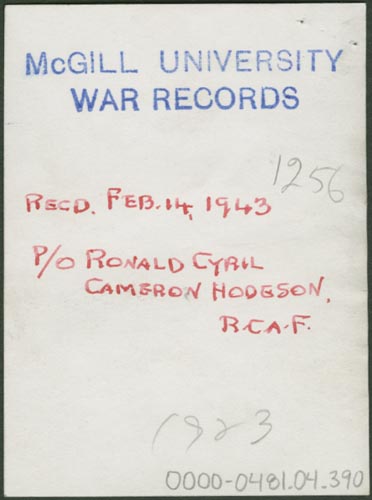 McGILL UNIVERSITY
WAR RECORDS
1256
RECD. FEB. 14, 1943
P/O RONALD CYRIL
CAMERON HODGSON,
R.C.A.F.
1923
0000-0481.04.390